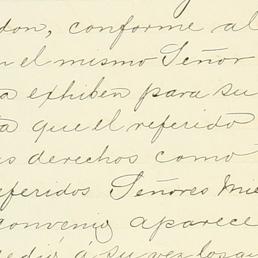 don, conforme al
n el mismo Señor
a exhiben para su
a que el referido
s derechos como
eferidos Señores Mie
convenio aparece
cedió, á su vez los qu